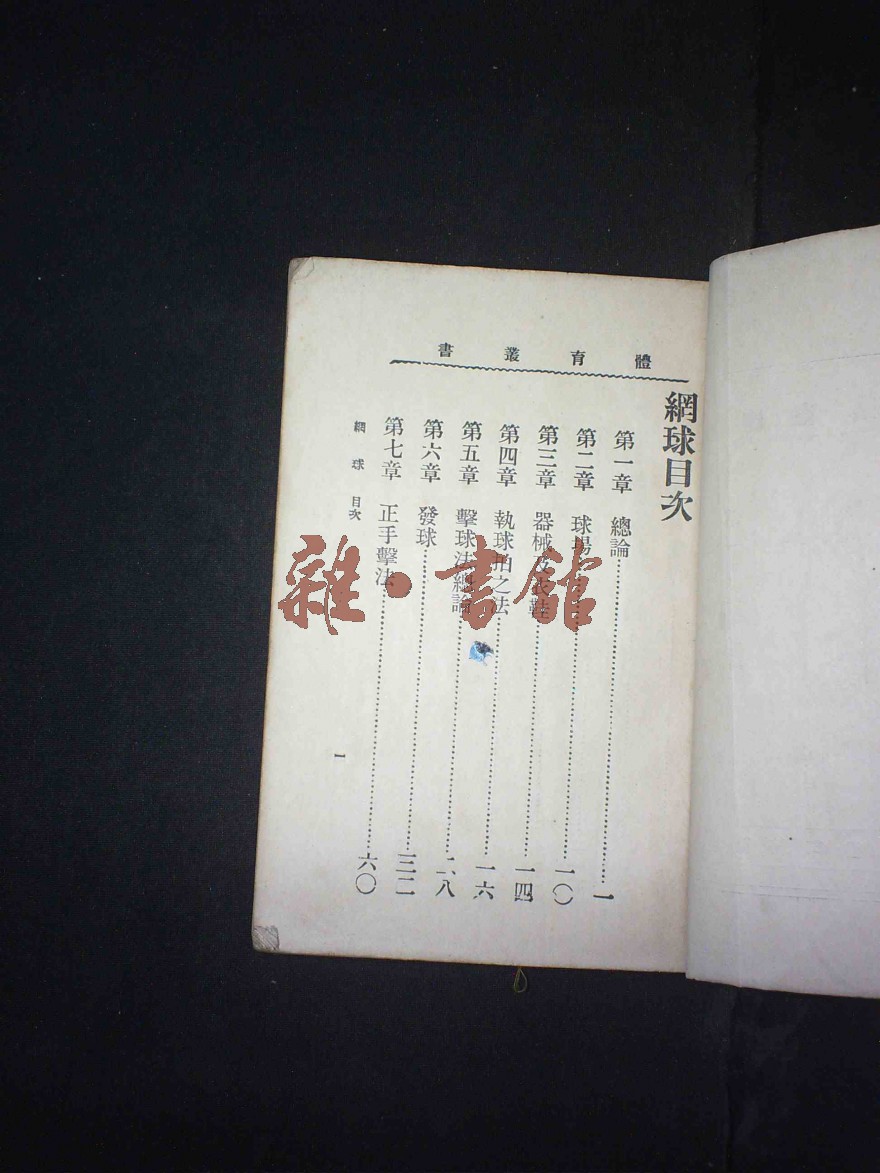 體育叢書
網球目次
第一章 總論⋯⋯一
第二章 球場⋯⋯一〇
第三章 器械及衣鞋⋯⋯一四
第四章 執球拍之法⋯⋯一六
第五章 擊球法總論⋯⋯二八
第六章 發球⋯⋯三二
第七章 正手擊法⋯⋯六〇
網球 目次
一
雜·書館